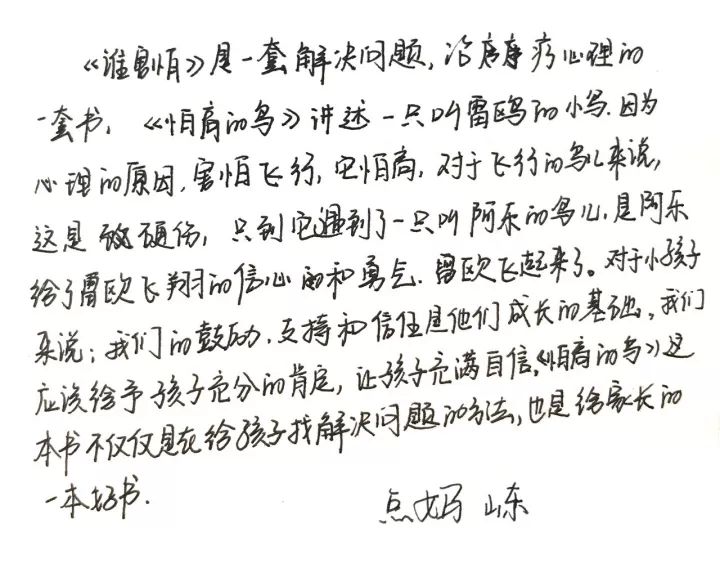 《谁害怕》是一套解决问题，治疗心理的
一套书，《怕高的鸟》讲述一只叫雷鸥的小鸟.因为
心理的原因，害怕飞行，它怕高，对于飞行的鸟儿来说，
这是硬伤，只到它遇到了一只叫阿乐的鸟儿，是阿乐
给了雷欧飞翔的信心和勇气.雷欧飞起来了。对于小孩子
来说；我们的鼓励.支持和信任是他们成长的基础，我们
应该给予孩子充分的肯定，让孩子充满自信，《怕高的鸟》这
本书不仅仅是在给孩子找解决问题的方法，也是给家长的
一本好书.
点妈 山东